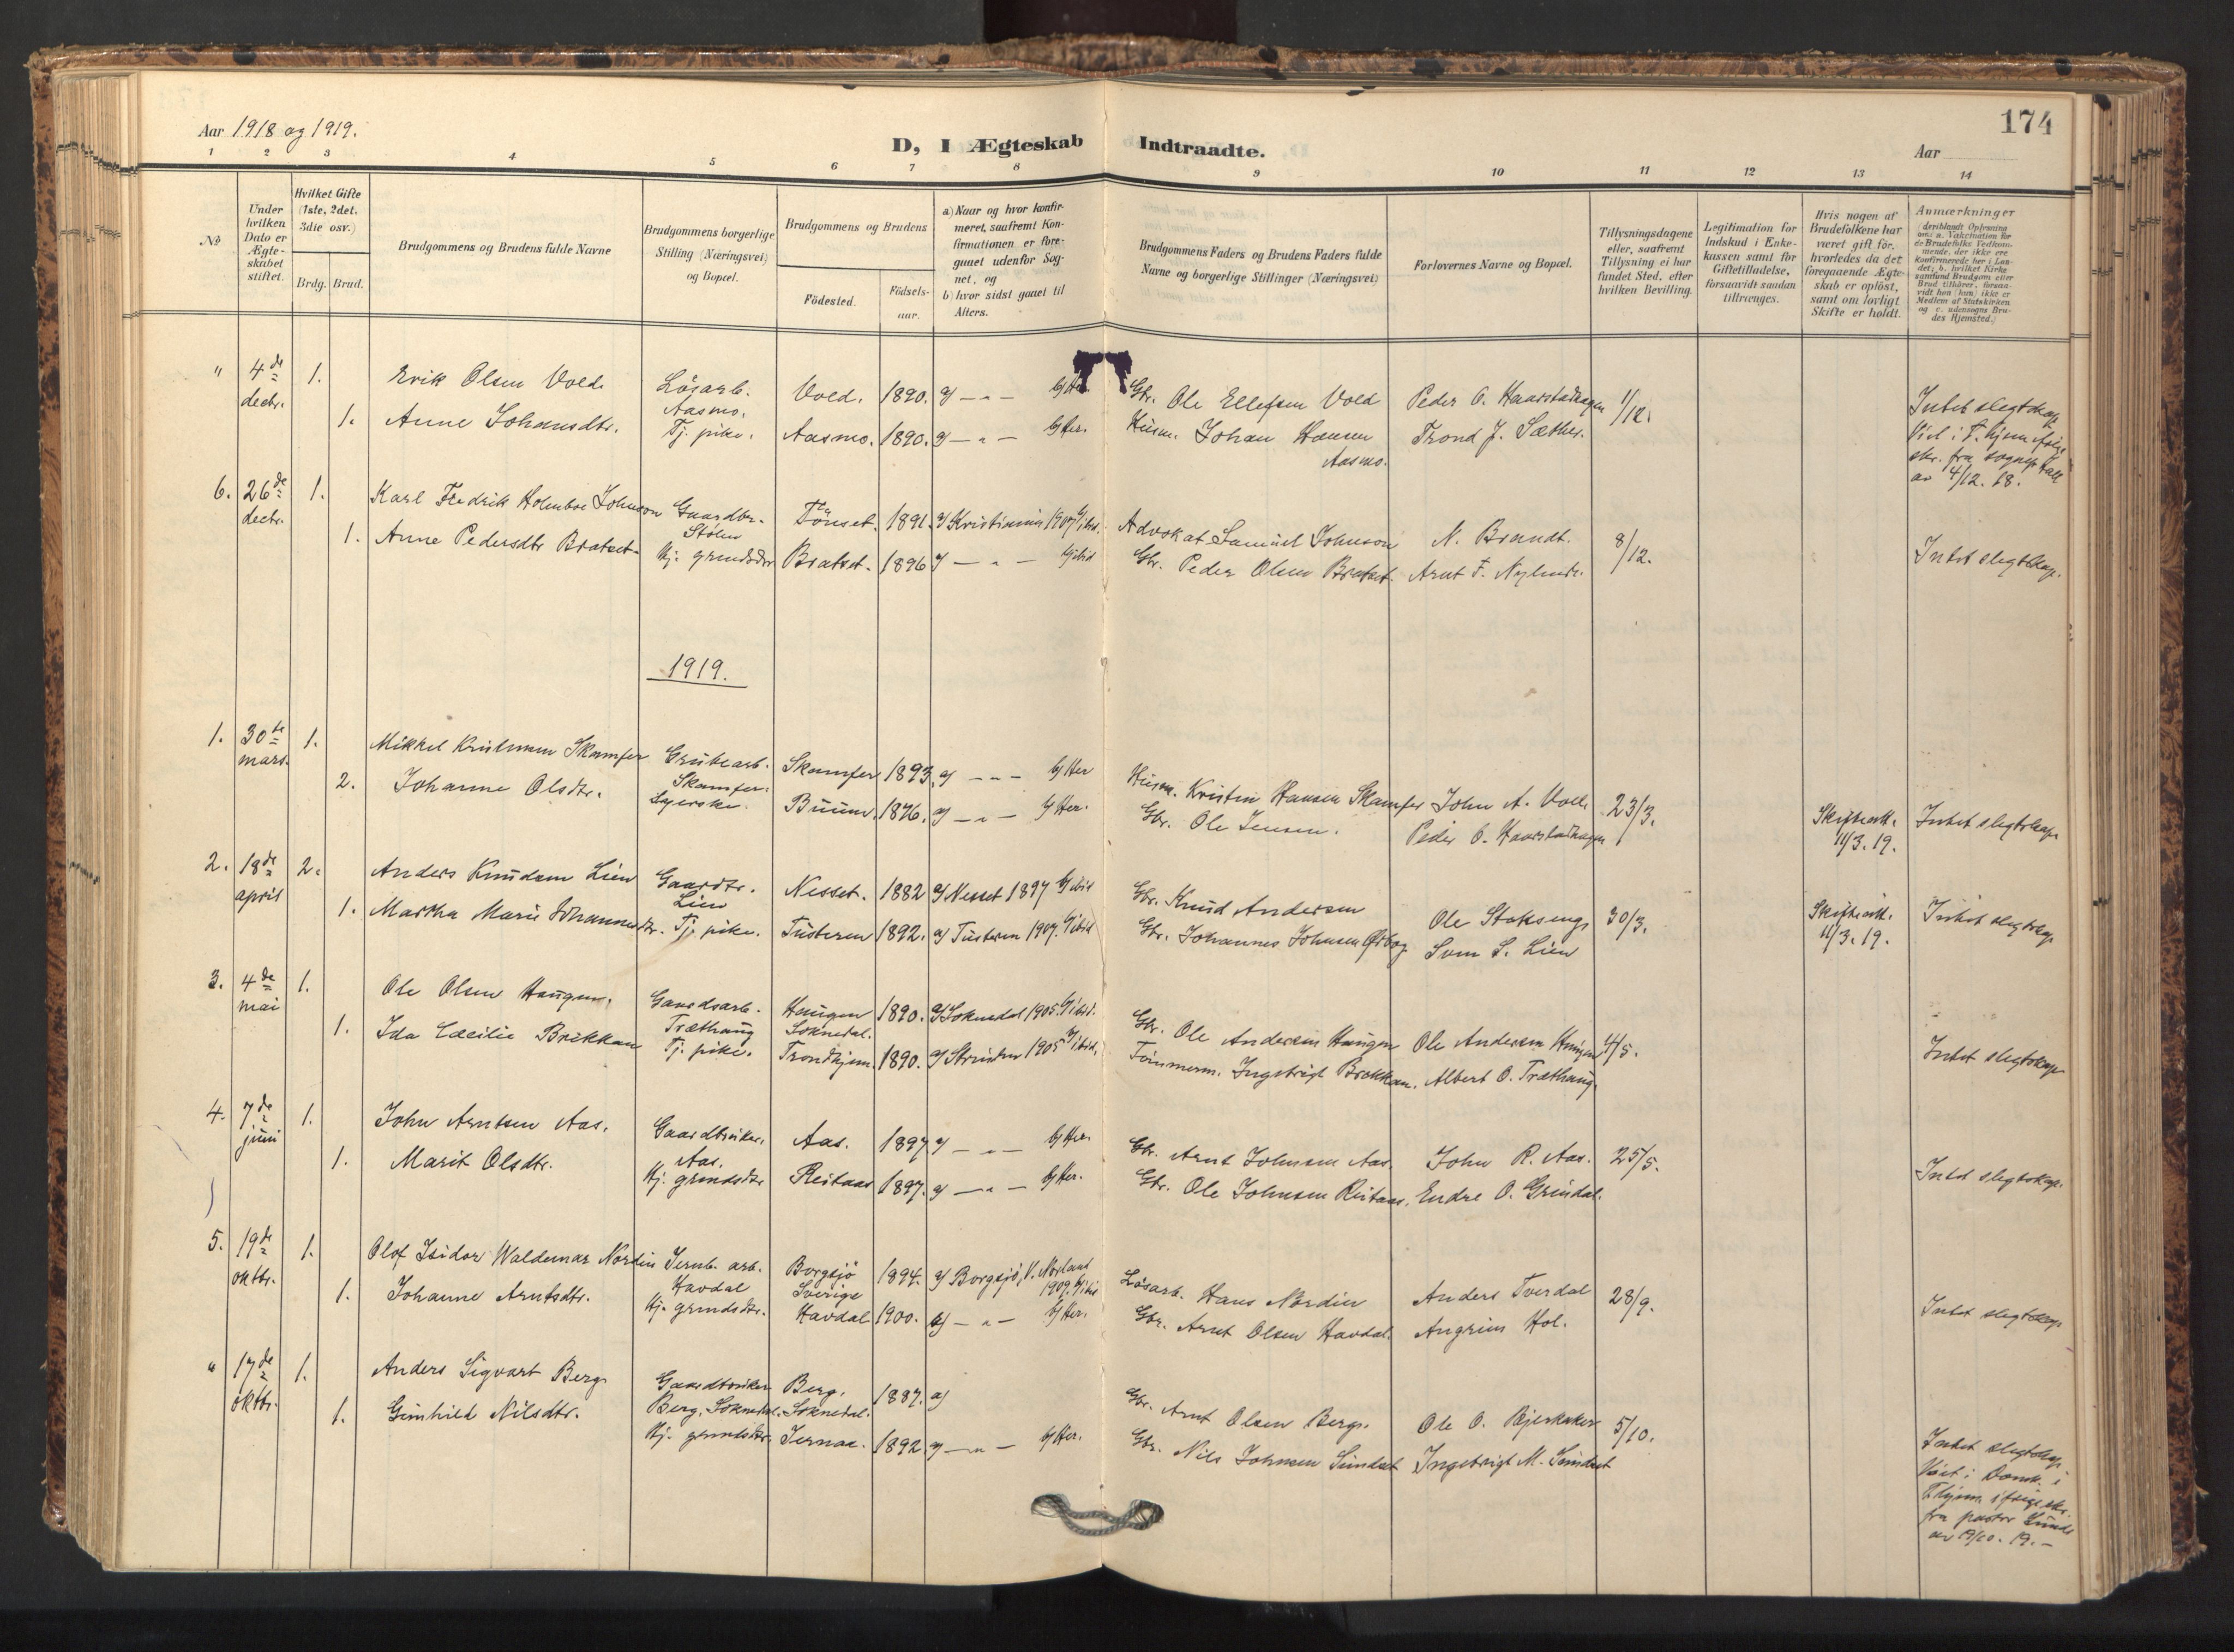 174
Aar 1918 og 1919.
D, I Ægteskab Indtraadte.
Aar
1 2 3 4 5 6 7 8 9 10 11 12 13 14
No
Under hvilken Dato er Ægteskabet stiftet.
Hvilket Gifte (1ste, 2det, 3die osv.)
Brdg. Brud.
Brudgommens og Brudens fulde Navne
Brudgommens borgerlige Stilling (Næringsvei) og Bopæl.
Brudgommens og Brudens
Födested.
Födsels-aar.
a) Naar og hvor konfirmeret, saafremt Konfirmationen er foregaaet udenfor Sognet, og
b) hvor sidst gaaet til Alters.
Brudgommens Faders og Brudens Faders fulde Navne og borgerlige Stillinger (Næringsvei)
Forlovernes Navne og Bopæl.
Tillysningsdagene eller, saafremt Tillysning ei har fundet Sted, efter hvilken Bevilling.
Legitimation for Indskud i Enkekassen samt for Giftetilladelse, forsaavidt saadan tiltrænges.
Hvis nogen af Brudefolkene har været gift för, hvorledes da det foregaaende Ægteskab er oplöst, samt om lovligt Skifte er holdt.
Anmærkninger (deriblandt Oplysning om: a. Vakcination for de Brudefolks Vedkommende, der ikke ere konfirmerede her i Landet; b. hvilket Kirkesamfund Brudgom eller Brud tilhörer, forsaavidt han (hun) ikke er Medlem af Statskirken og c. udensogns Brudes Hjemsted.)
" 4de dechr. 1. Erik Olsen Vold Lösarb. Aasmo. Vold. 1890. a) — " — b) Her. Gbr. Ole Ellefsen Vold Peder O. Haarstadhagen 1/12. Intet slegtskap.
1. Anne Johansdtr. Tj. pike. Aasmo. 1890. a) — " — b) Her. Husm. Johan Hansen Aasmo. Trond J. Sæther.
av 4/12. 18.
6. 26de dechr. 1. Karl Fredrik Holmboe Johnson Gaardbr. Stölen Tönset. 1891. a) Kristiania 1907 b) ibid. Advokat Samuel Johnson N. Brandt. 8/12. Intet slegtskap.
1. Anne Pedersdtr Bratset Hj. grmdsdtr Bratset. 1896 a) — " — b) ibid Gbr. Peder Olsen Bratset. Arnt F. Nylende.
1919.
1. 30te mars. 1. Mikkel Kristensen Skamfer Grubearb. Skamfer. Skamfer 1893. a) — " — b) Her Husm. Kristen Hansen Skamfer John A. Voll 23/3. Skifteatt. 11/3. 19. Intet slegtskap.
2. Johanne Olsdtr. Syerske. Buum. 1876. a) — " — b) Her. Gbr. Ole Jensen. Peder O. Haarstadhagen
2. 18de april 2. Anders Knudsen Lien Gaardbr. Lien Nesset. 1882 a) Nesset 1897 b) ibid Gbr. Knud Andersen Ole Stokseng 30/3. Skifteatt. 11/3. 19. Intet slegtskap.
1. Martha Marie Johannesdtr. Tj. pike. Tusteren 1892. a) Tusteren 1907. b) ibid Gbr. Johannes Johnsen Sven S. Lien
3. 4de mai 1. Ole Olsen Haugen. Gaardsarb. Træthaug Haugen Soknedal. 1890. a) Soknedal 1905. b) ibid. Gbr. Ole Andersen Haugen Ole Andersen Haugen 4/5. Intet slegtskap
1. Ida Cæcilie Brekkan Tj. pike. Trondhjem. 1890. a) Strinden 1905 b) ibid. Tömmerm. Ingebrigt Brekkan. Albert O. Træthaug
4. 7de juni 1. John Arntsen Aas. Gaardbruker. Aas. Aas. 1897 a) — " — b) Her. Gbr. Arnt Johnsen Aas. John R. Aas. 25/5. Intet slegtskap.
1. Marit Olsdtr. Hj. grmdsdtr Reitaas 1897. a) — " — b) Her. Gbr. Ole Johnsen Reitaas. Endre O. Grindal.
5. 19de oktbr. 1. Olof Isidor Waldemar Nordin Jernb. arb. Havdal Borgsjö Sverige 1894. a) Borgsjö, V. Norland 1909. b) ibid Lösarb. Hans Nordin Anders Tverdal 28/9. Intet slegtskap
1. Johanne Arntsdtr. Hj. grmdsdtr. Havdal 1900. a) — " — b) Her. Gbr. Arnt Olsen Havdal. Angrim Hol.
" 17de oktbr. 1. Anders Sigvart Berg Gaardbruker Berg, Soknedal. Berg, Soknedal. 1887. a) Gbr. Arnt Olsen Berg. Ole O. Bjerkaker 5/10. Intet slegtskap.
1. Gunhild Nilsdtr. Hj. grmdsdtr. 1892 a) — " — b) Her. Gbr. Nils Johnsen Sundset Ingebrigt M. Sundset
fra pastor
av 19/10. 19. —